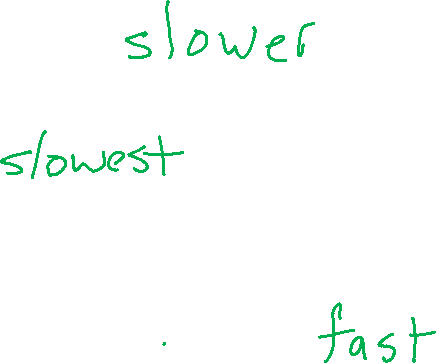 slower
slowest
fast